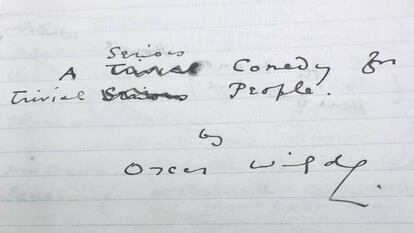 Serious
A Trivial Comedy for
Trivial Serious People.
by
Oscar Wilde.